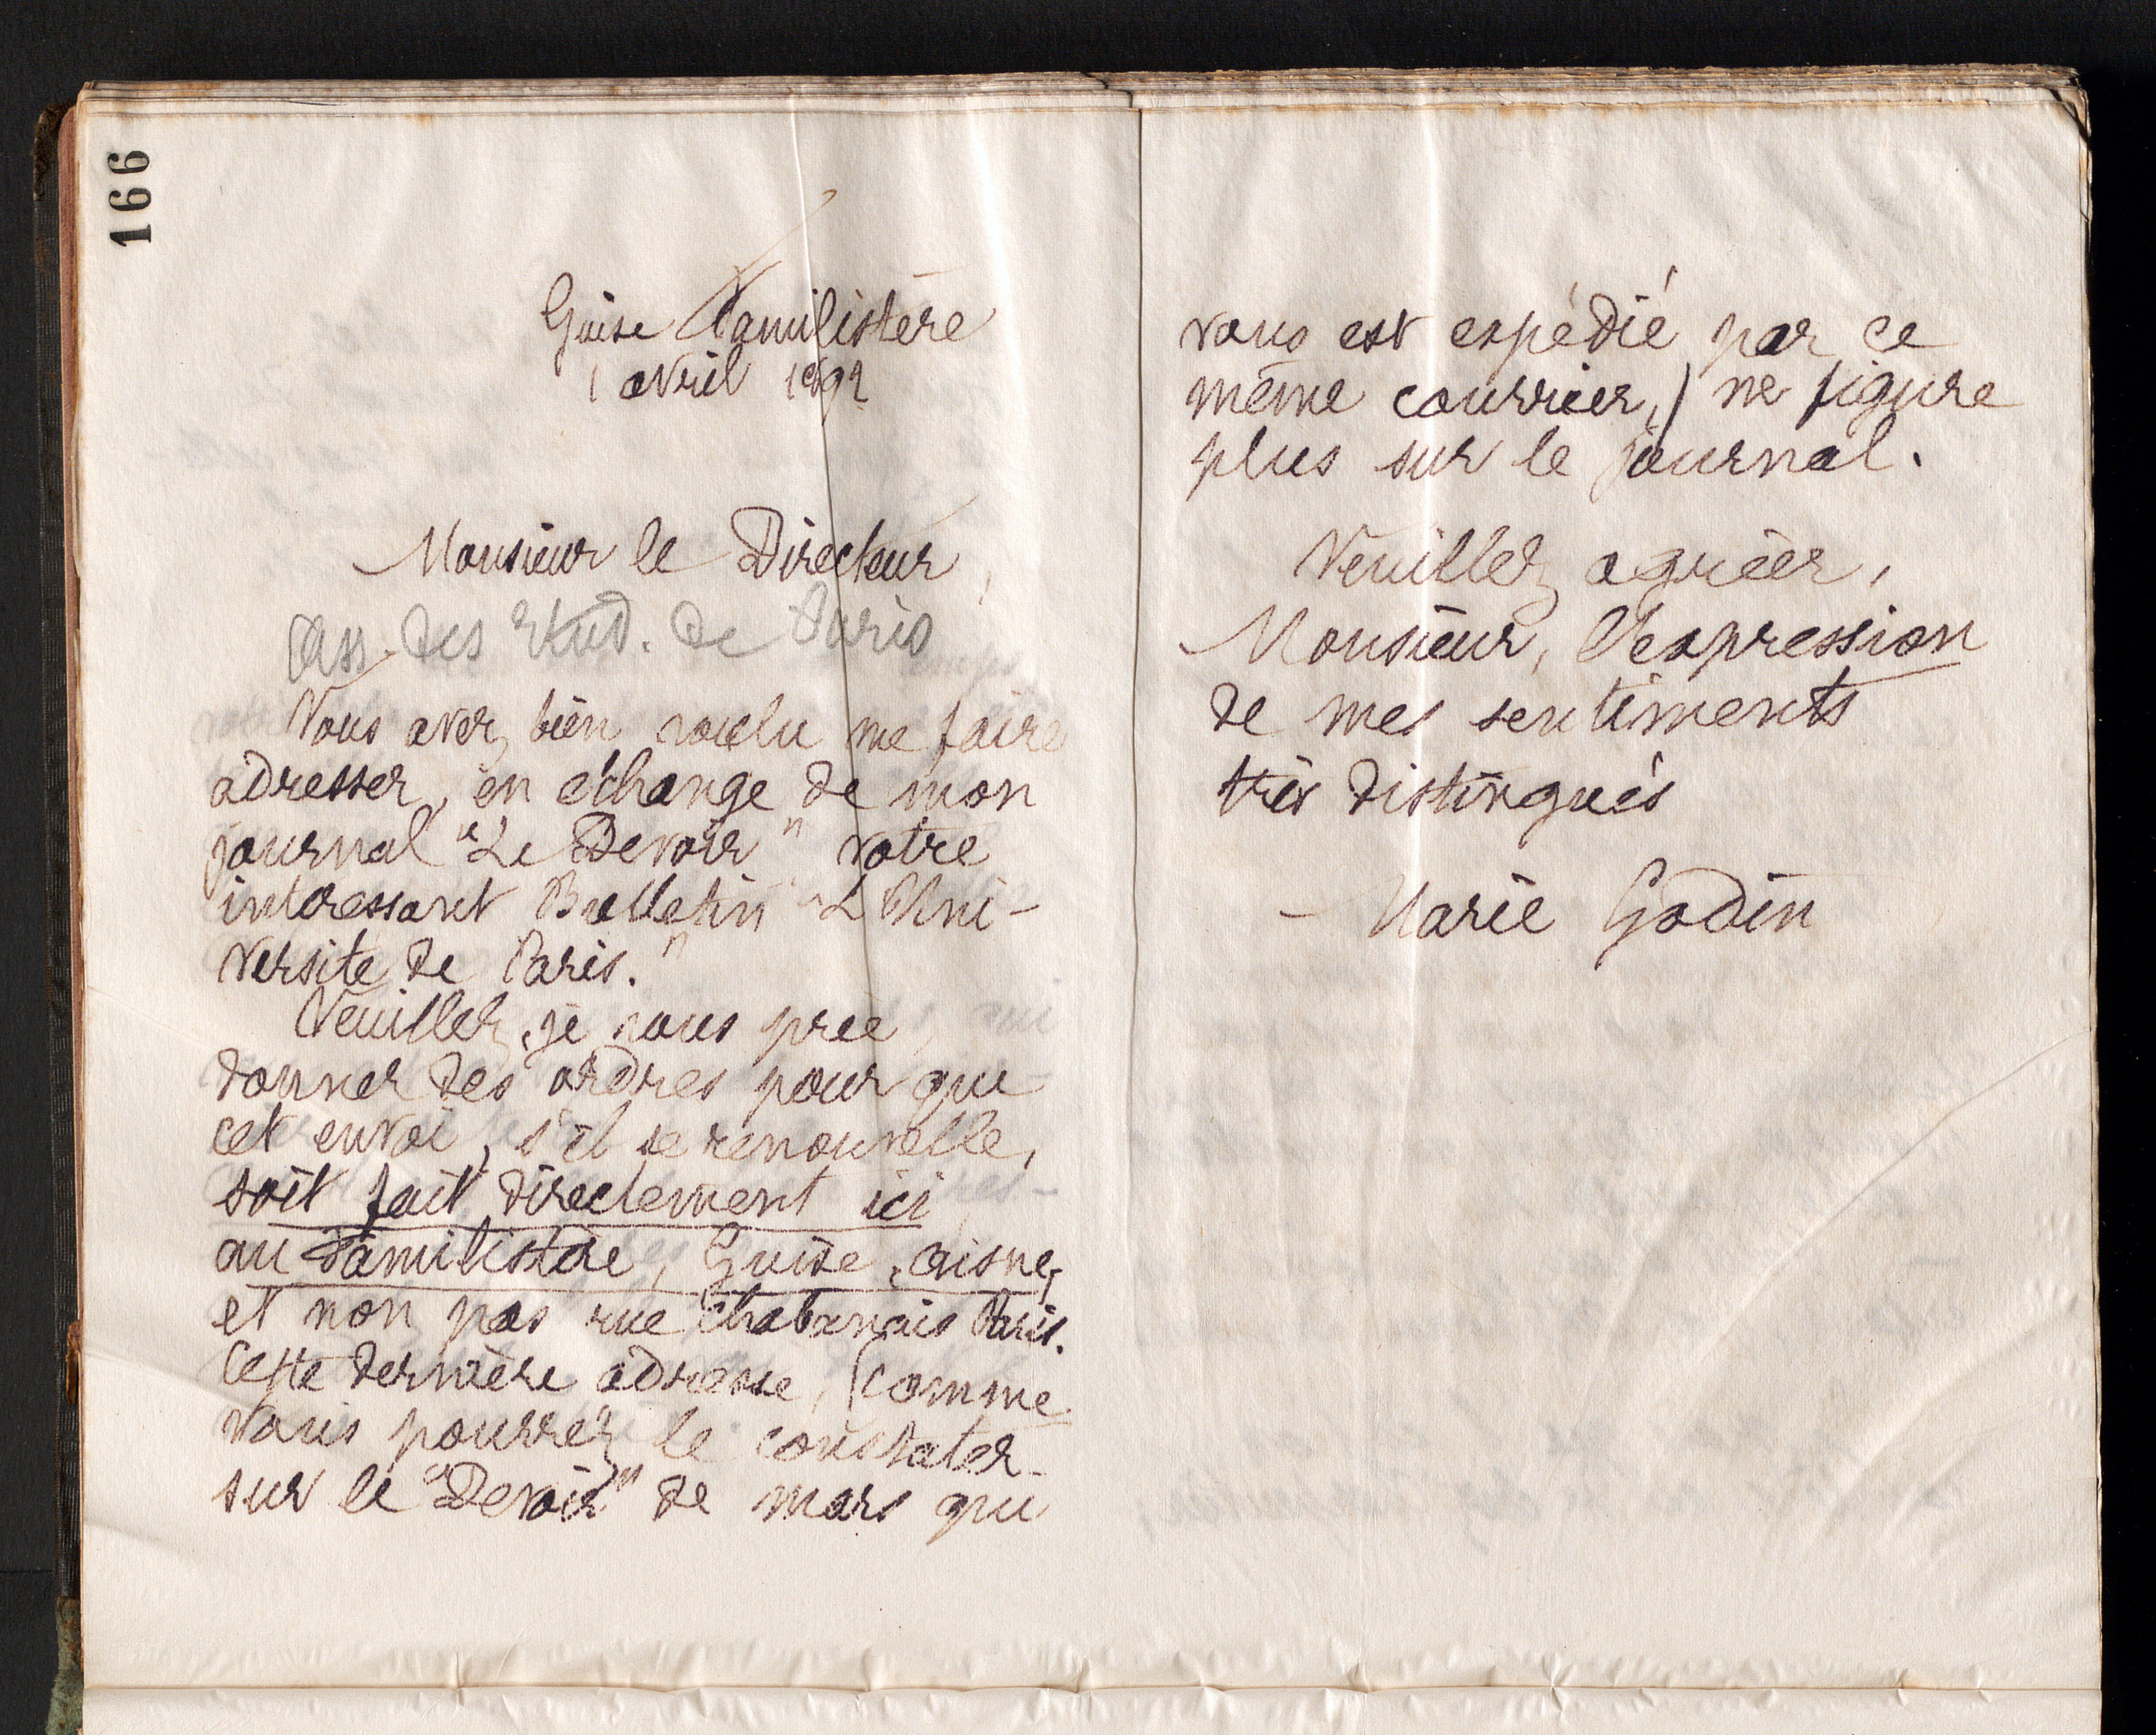 166
Guise Familistère
1 avril 1892
Monsieur le Directeur,
Ass. des Etud. de Paris
Vous avez bien voulu me faire
adresser, en échange de mon
journal "Le Devoir" votre
intéressant Bulletin "L'Uni-
versité de Paris."
Veuillez, je vous prie,
donner des ordres pour que
cet envoi, s'il se renouvelle,
soit fait directement ici,
au Familistère, Guise, Aisne,
et non pas rue Chabanais Paris.
Cette dernière adresse, (comme
vous pourrez le constater
sur le "Devoir" de mars qui
vous est expédié par ce
même courrier,) ne figure
plus sur le journal.
Veuillez agréer,
Monsieur, l'expression
de mes sentiments
très distingués
Marie Godin